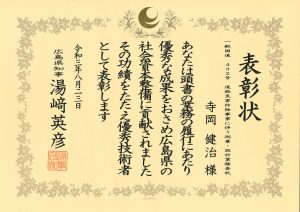 表彰状
一般国道432号 道路災害防除事業に伴う測量・設計業務委託
寺岡 健治 様
あなたは頭書の業務の履行にあたり
優秀な成果をおさめ広島県の
社会資本整備に貢献されました
その功績をたたえ優秀技術者
として表彰します
令和三年八月二三日
広島県知事
湯﨑 英彦